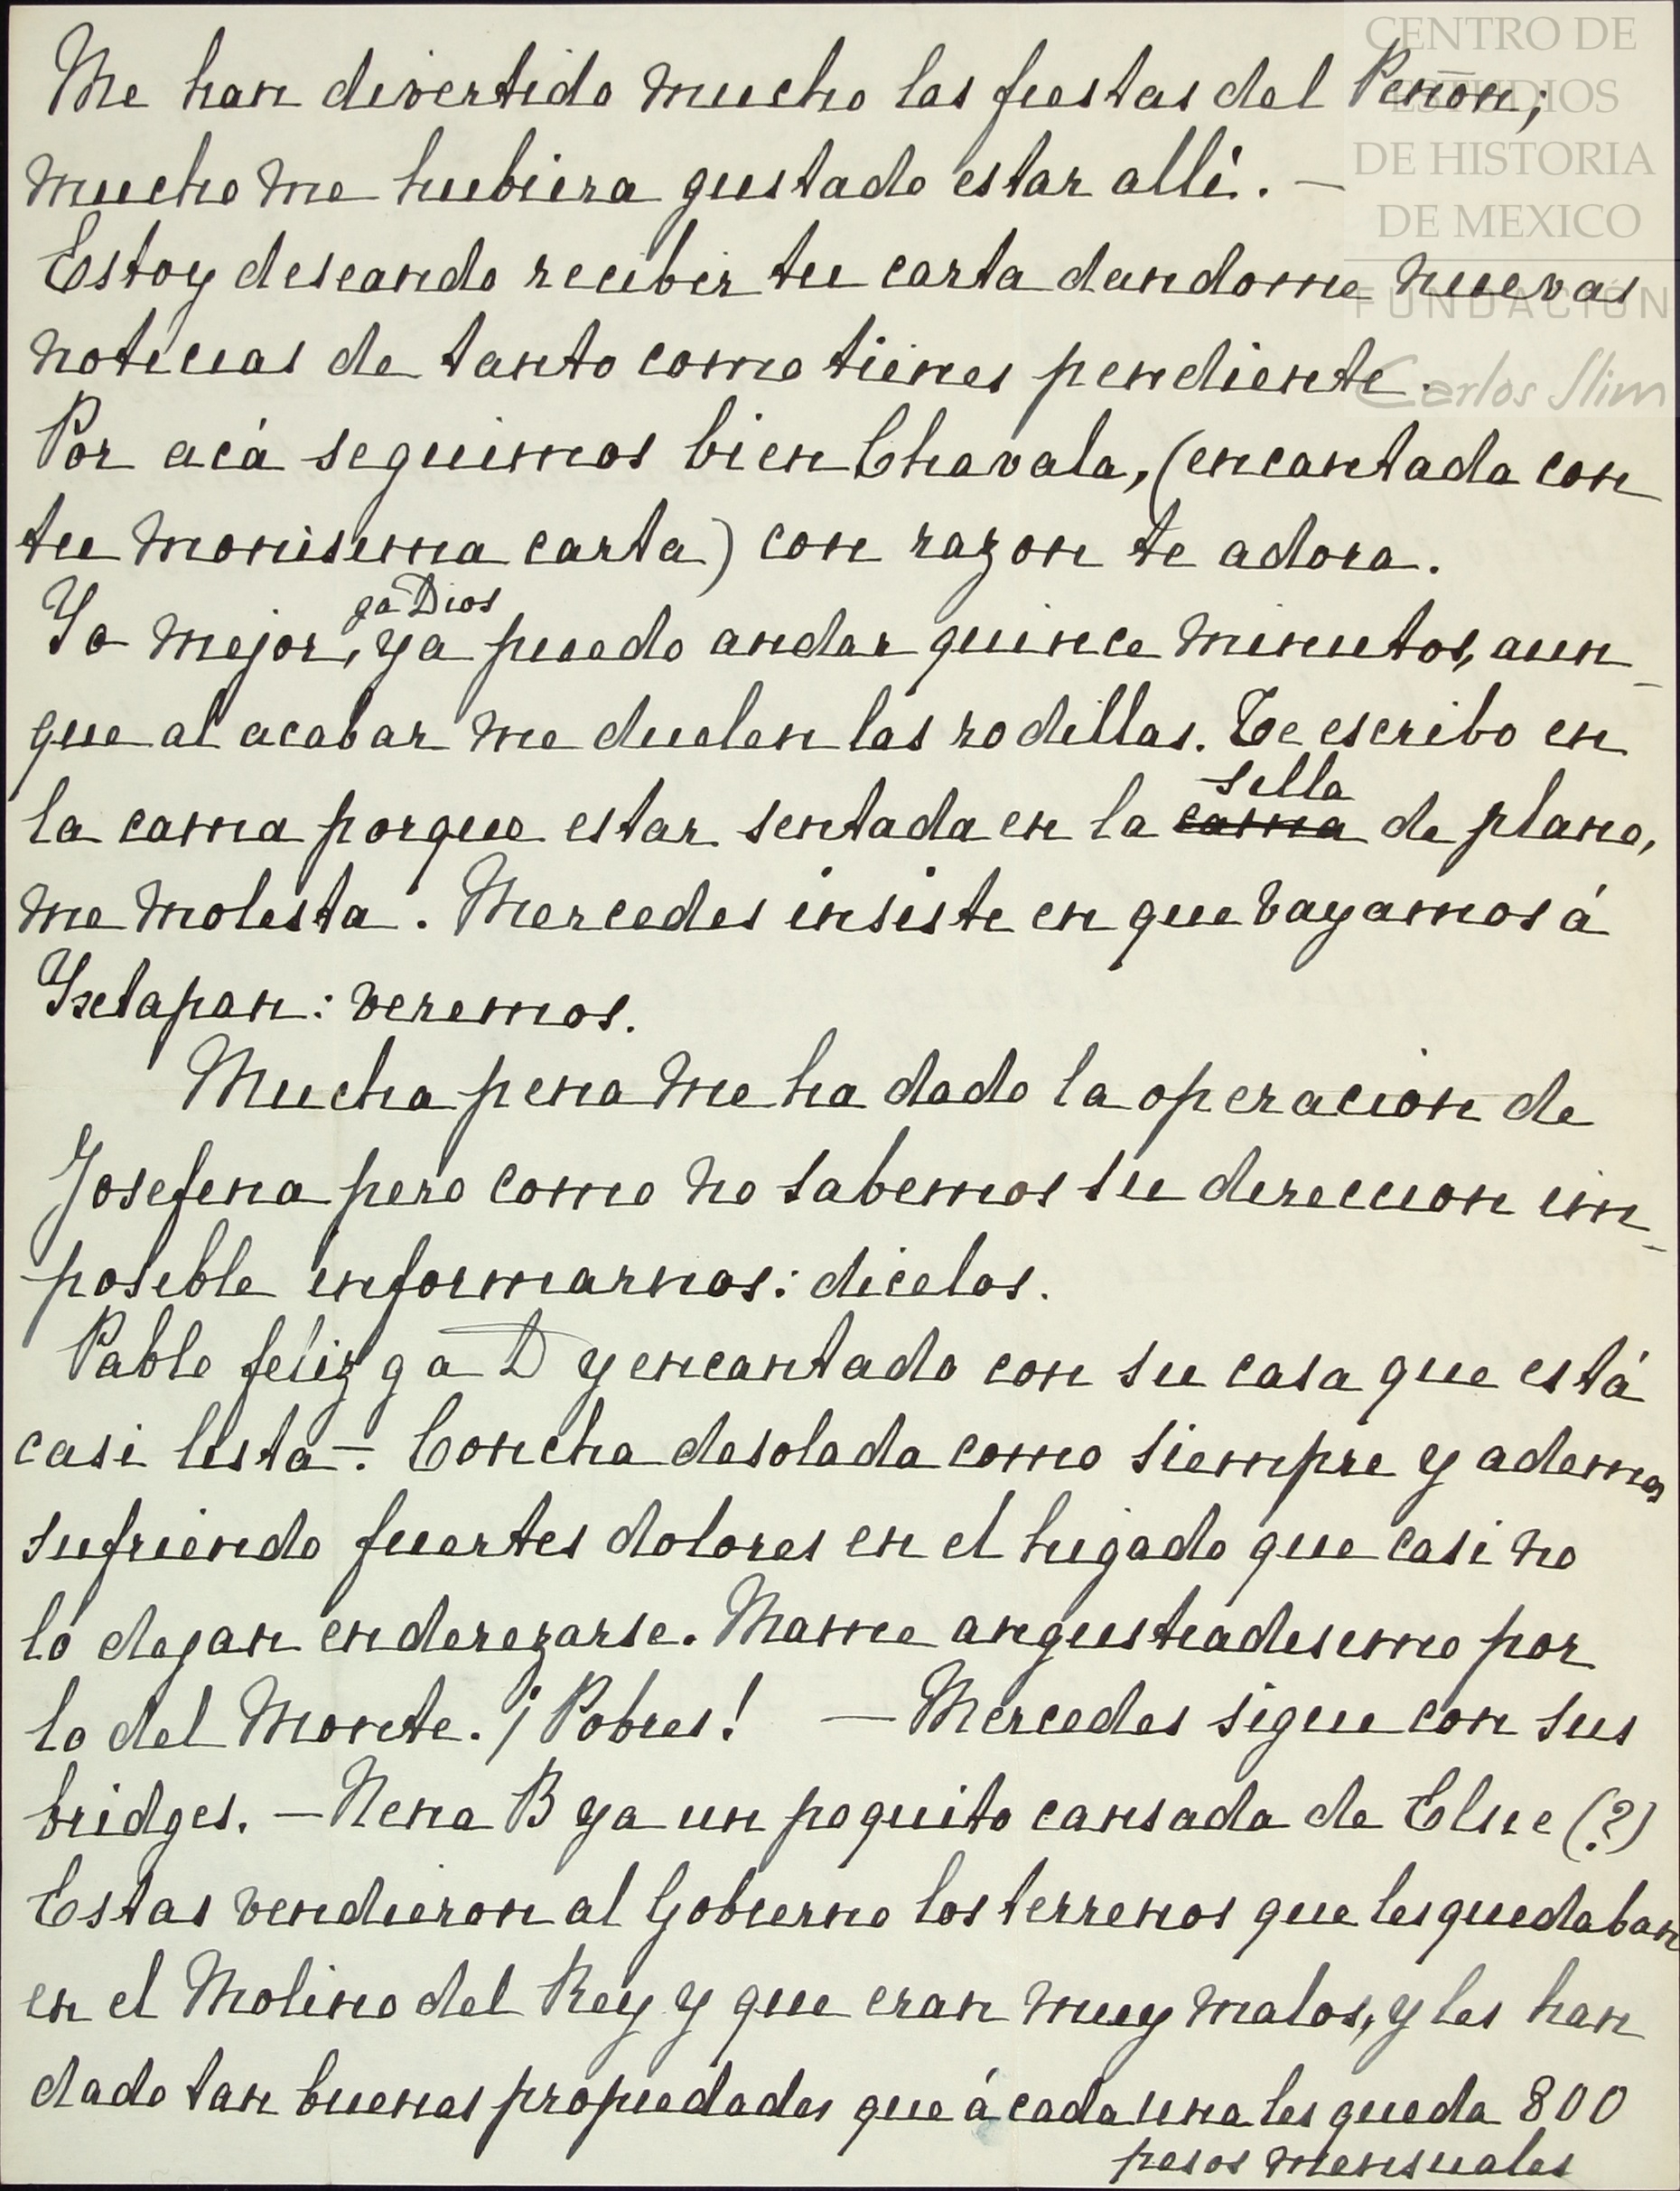 CENTRO DE
ESTUDIOS
DE HISTORIA
DE MEXICO
FUNDACIÓN
Carlos Slim
Me han divertido mucho las fiestas del Peñon;
mucho me hubiera gustado estar allí. —
Estoy deseando recibir tu carta dandome nuevas
noticias de tanto como tienes pendiente.
Por acá seguimos bien Chavala, (encantada con
tu monisima carta) con razon te adora.
ga Dios
Yo mejor, ya puedo andar quince minutos, aun-
que al acabar me duelen las rodillas. Te escribo en
silla
la cama porque estar sentada en la cama de plano,
me molesta. Mercedes insiste en que vayamos á
Yxtapan: veremos.
Mucha pena me ha dado la operación de
Josefina pero como no sabemos su direccion im-
posible informarnos: dicelos.
Pablo feliz g a D y encantado con su casa que está
casi lista —. Concha desolada como siempre y ademas
sufriendo fuertes dolores en el higado que casi no
la dejan enderezarse. Mame angustiadisimo por
lo del Monte. ¡Pobres! — Mercedes sigue con sus
bridges. — Nena B ya un poquito cansada de Elsie (?)
Estas vendieron al Gobierno los terrenos que les quedaban
en el Molino del Rey y que eran muy malos, y les han
dado tan buenas propiedades que á cada una les queda 800
pesos mensuales